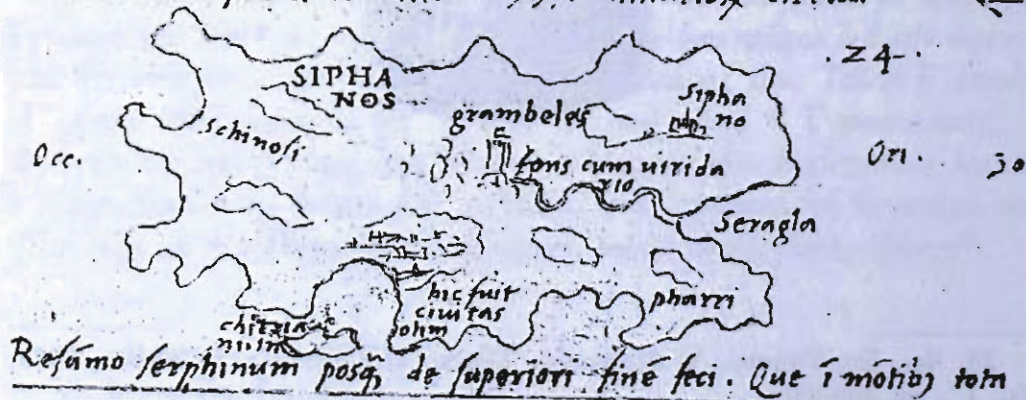 .24.
SIPHA
NOS
Schinosi
grambeles
Sipha
no
Occ.
fons cum uirida
rio
Ori.
30
Seragla
hic fuit
ciuitas
olim
pharri
chitria
Resumo serphinum posq̃ de superiori finē feci. Que ī mōtibꝫ tota